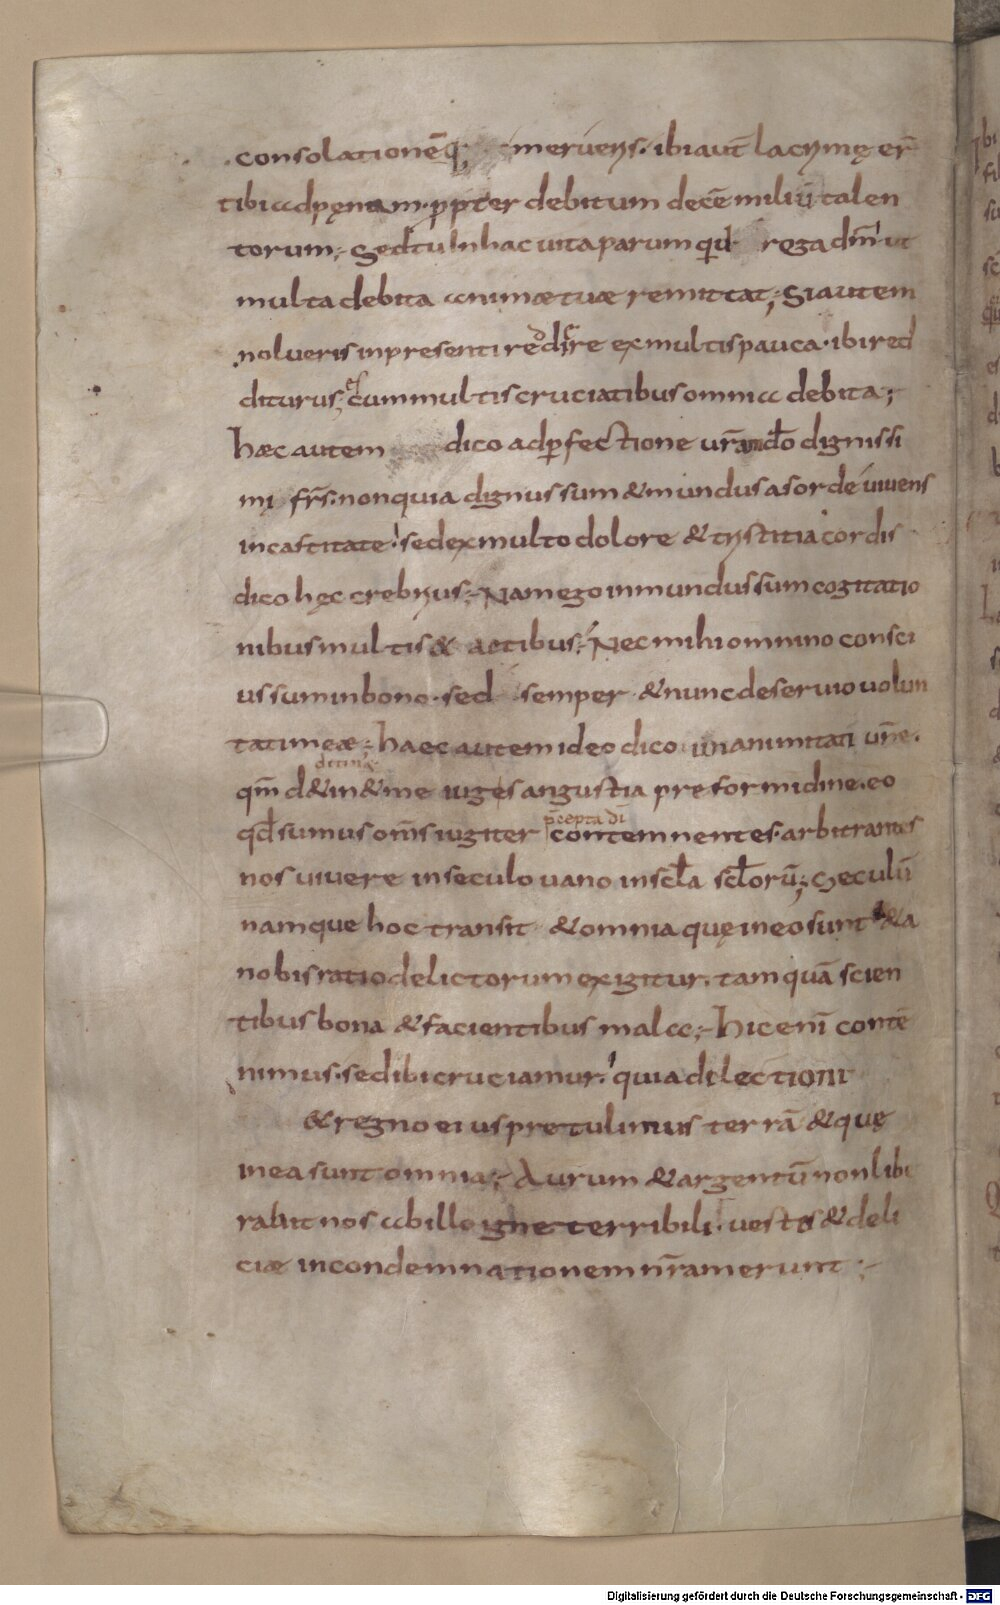 consolationēq; merueris. ibi aut̄ lacrymę er̄
tibi ad pęnam. ꝓpter debitum decē miliū talen
torum;- Sed tu In hac uita parum quid roga dn̄m ut
multa debita animæ tuæ remittat; Si autem
nolueris in presenti reddere ex multis pauca. ibi red
diturus; es cum multis cruciatibus omnia debita;
hæc autem dico ad ꝑfectione ur̄am do dignissi
mi fr̄s. non quia dignus sum & mundus a sorde uiuens
in castitate! sed ex multo dolore & tristitia cordis
dico hęc crebrius;- Nam ego inmundus sum cogitatio
nibus multis & actibus;- Nec mihi omnino consci
us sum in bono. sed semper & nunc deseruio uolun
tati meæ;- haec autem ideo dico unanimitati ur̄ne.
qm̄ d&in& me iuges angustia pre formidine. eo
p̄cepta dī
qd̄ sumus om̄s iugiter contemnentes. arbitrantes
nos uiuere in seculo uano in scl̄a scl̄orū; Seculū
namque hoc transit & omnia quę in eo sunt & a
nobis ratio delictorum exigitur. tamquā scien
tibus bona & facientibus mala;- Hic enī contē
nimus. sed ibi cruciamur! quia dilectioni
& regno eius pretulimus terrā & quę
in ea sunt omnia;- Aurum & argentū non libe
rabit nos ab illo igne terribili. uestis & deli
ciæ in condemnationem nr̄am erunt ;-
Digitalisierung gefördert durch die Deutsche Forschungsgemeinschaft - DFG